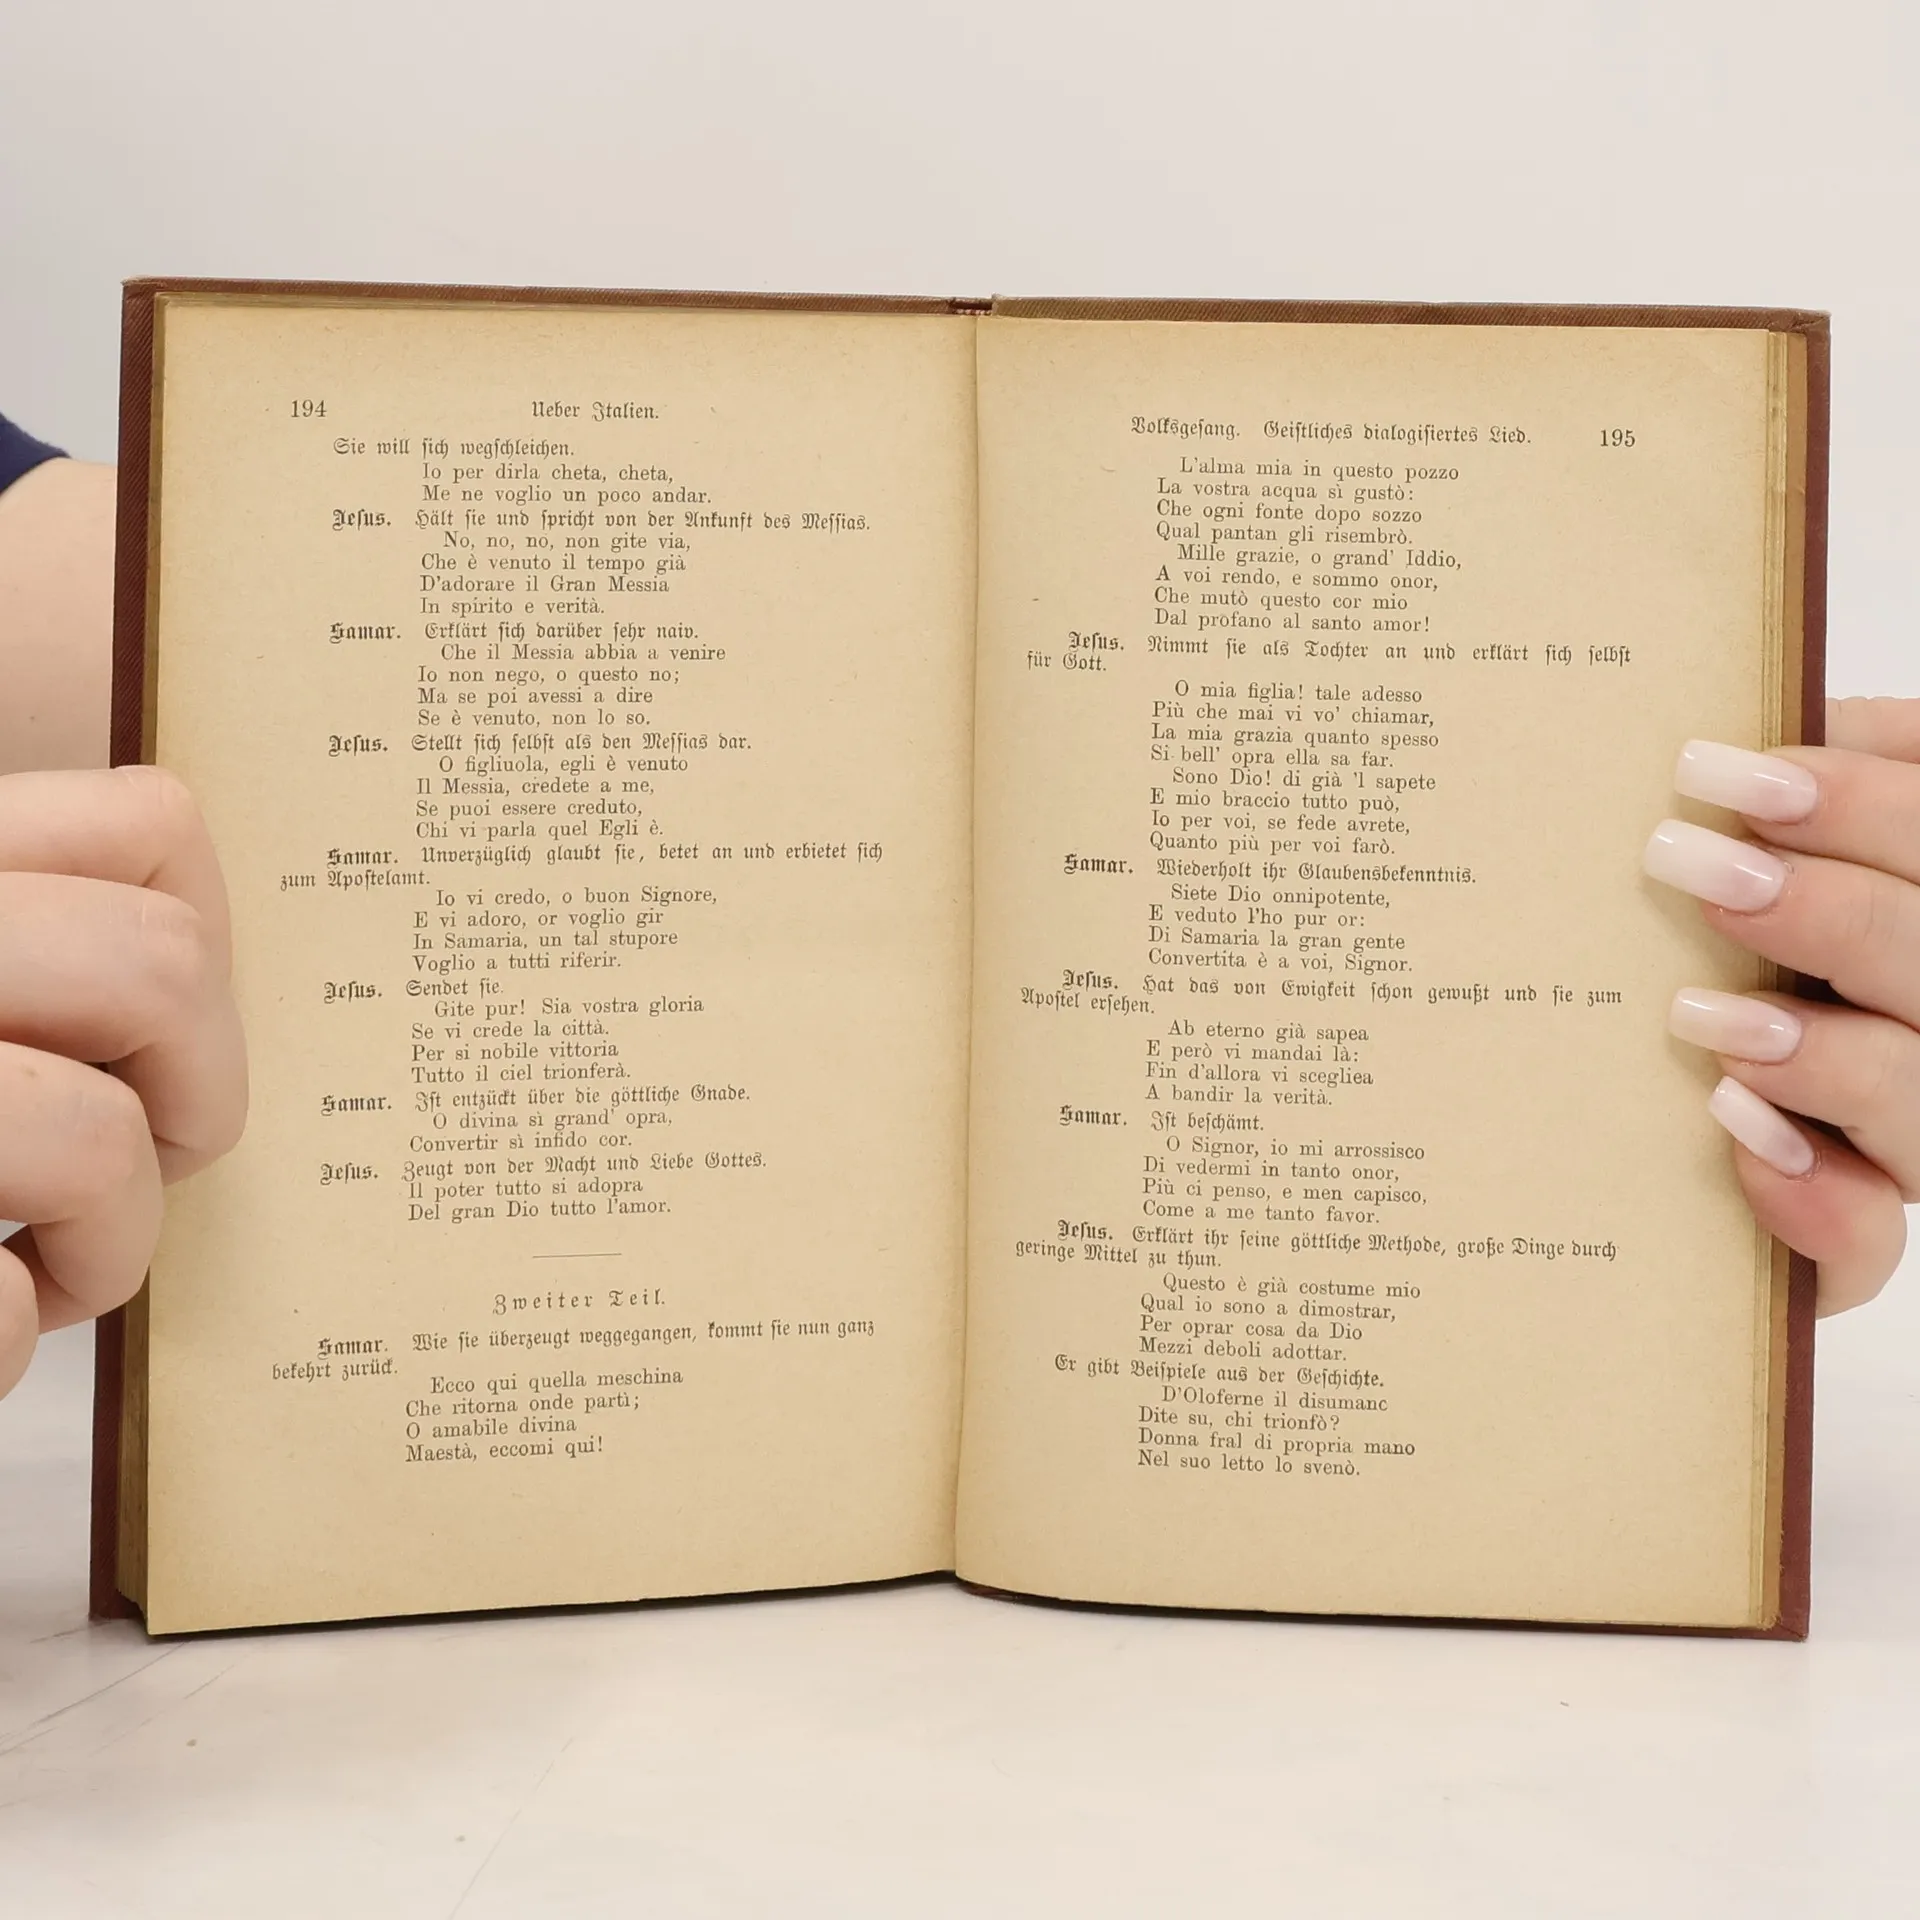 194 Ueber Italien.
Sie will sich wegschleichen.
Io per dirla cheta, cheta,
Me ne voglio un poco andar.
Jesus. Hält sie und spricht von der Ankunft des Messias.
No, no, no, non gite via,
Che è venuto il tempo già
D'adorare il Gran Messia
In spirito e verità.
Samar. Erklärt sich darüber sehr naiv.
Che il Messia abbia a venire
Io non nego, o questo no;
Ma se poi avessi a dire
Se è venuto, non lo so.
Jesus. Stellt sich selbst als den Messias dar.
O figliuola, egli è venuto
Il Messia, credete a me,
Se puoi essere creduto,
Chi vi parla quel Egli è.
Samar. Unverzüglich glaubt sie, betet an und erbietet sich
zum Apostelamt.
Io vi credo, o buon Signore,
E vi adoro, or voglio gir
In Samaria, un tal stupore
Voglio a tutti riferir.
Jesus. Sendet sie.
Gite pur! Sia vostra gloria
Se vi crede la città.
Per si nobile vittoria
Tutto il ciel trionferà.
Samar. Ist entzückt über die göttliche Gnade.
O divina sì grand' opra,
Convertir sì infido cor.
Jesus. Zeugt von der Macht und Liebe Gottes.
Il poter tutto si adopra
Del gran Dio tutto l'amor.
Zweiter Teil.
Samar. Wie sie überzeugt weggegangen, kommt sie nun ganz
bekehrt zurück.
Ecco qui quella meschina
Che ritorna onde partì;
O amabile divina
Maestà, eccomi qui!
Volksgesang. Geistliches dialogisiertes Lied. 195
L'alma mia in questo pozzo
La vostra acqua sì gustò:
Che ogni fonte dopo sozzo
Qual pantan gli risembrò.
Mille grazie, o grand' Iddio,
A voi rendo, e sommo onor,
Che mutò questo cor mio
Dal profano al santo amor!
Jesus. Nimmt sie als Tochter an und erklärt sich selbst
für Gott.
O mia figlia! tale adesso
Più che mai vi vo' chiamar,
La mia grazia quanto spesso
Si bell' opra ella sa far.
Sono Dio! di già 'l sapete
E mio braccio tutto può,
Io per voi, se fede avrete,
Quanto più per voi farò.
Samar. Wiederholt ihr Glaubensbekenntnis.
Siete Dio onnipotente,
E veduto l'ho pur or:
Di Samaria la gran gente
Convertita è a voi, Signor.
Jesus. Hat das von Ewigkeit schon gewußt und sie zum
Apostel ersehen.
Ab eterno già sapea
E però vi mandai là:
Fin d'allora vi scegliea
A bandir la verità.
Samar. Ist beschämt.
O Signor, io mi arrossisco
Di vedermi in tanto onor,
Più ci penso, e men capisco,
Come a me tanto favor.
Jesus. Erklärt ihr seine göttliche Methode, große Dinge durch
geringe Mittel zu thun.
Questo è già costume mio
Qual io sono a dimostrar,
Per oprar cosa da Dio
Mezzi deboli adottar.
Er gibt Beispiele aus der Geschichte.
D'Oloferne il disumanc
Dite su, chi trionfò?
Donna fral di propria mano
Nel suo letto lo svenò.